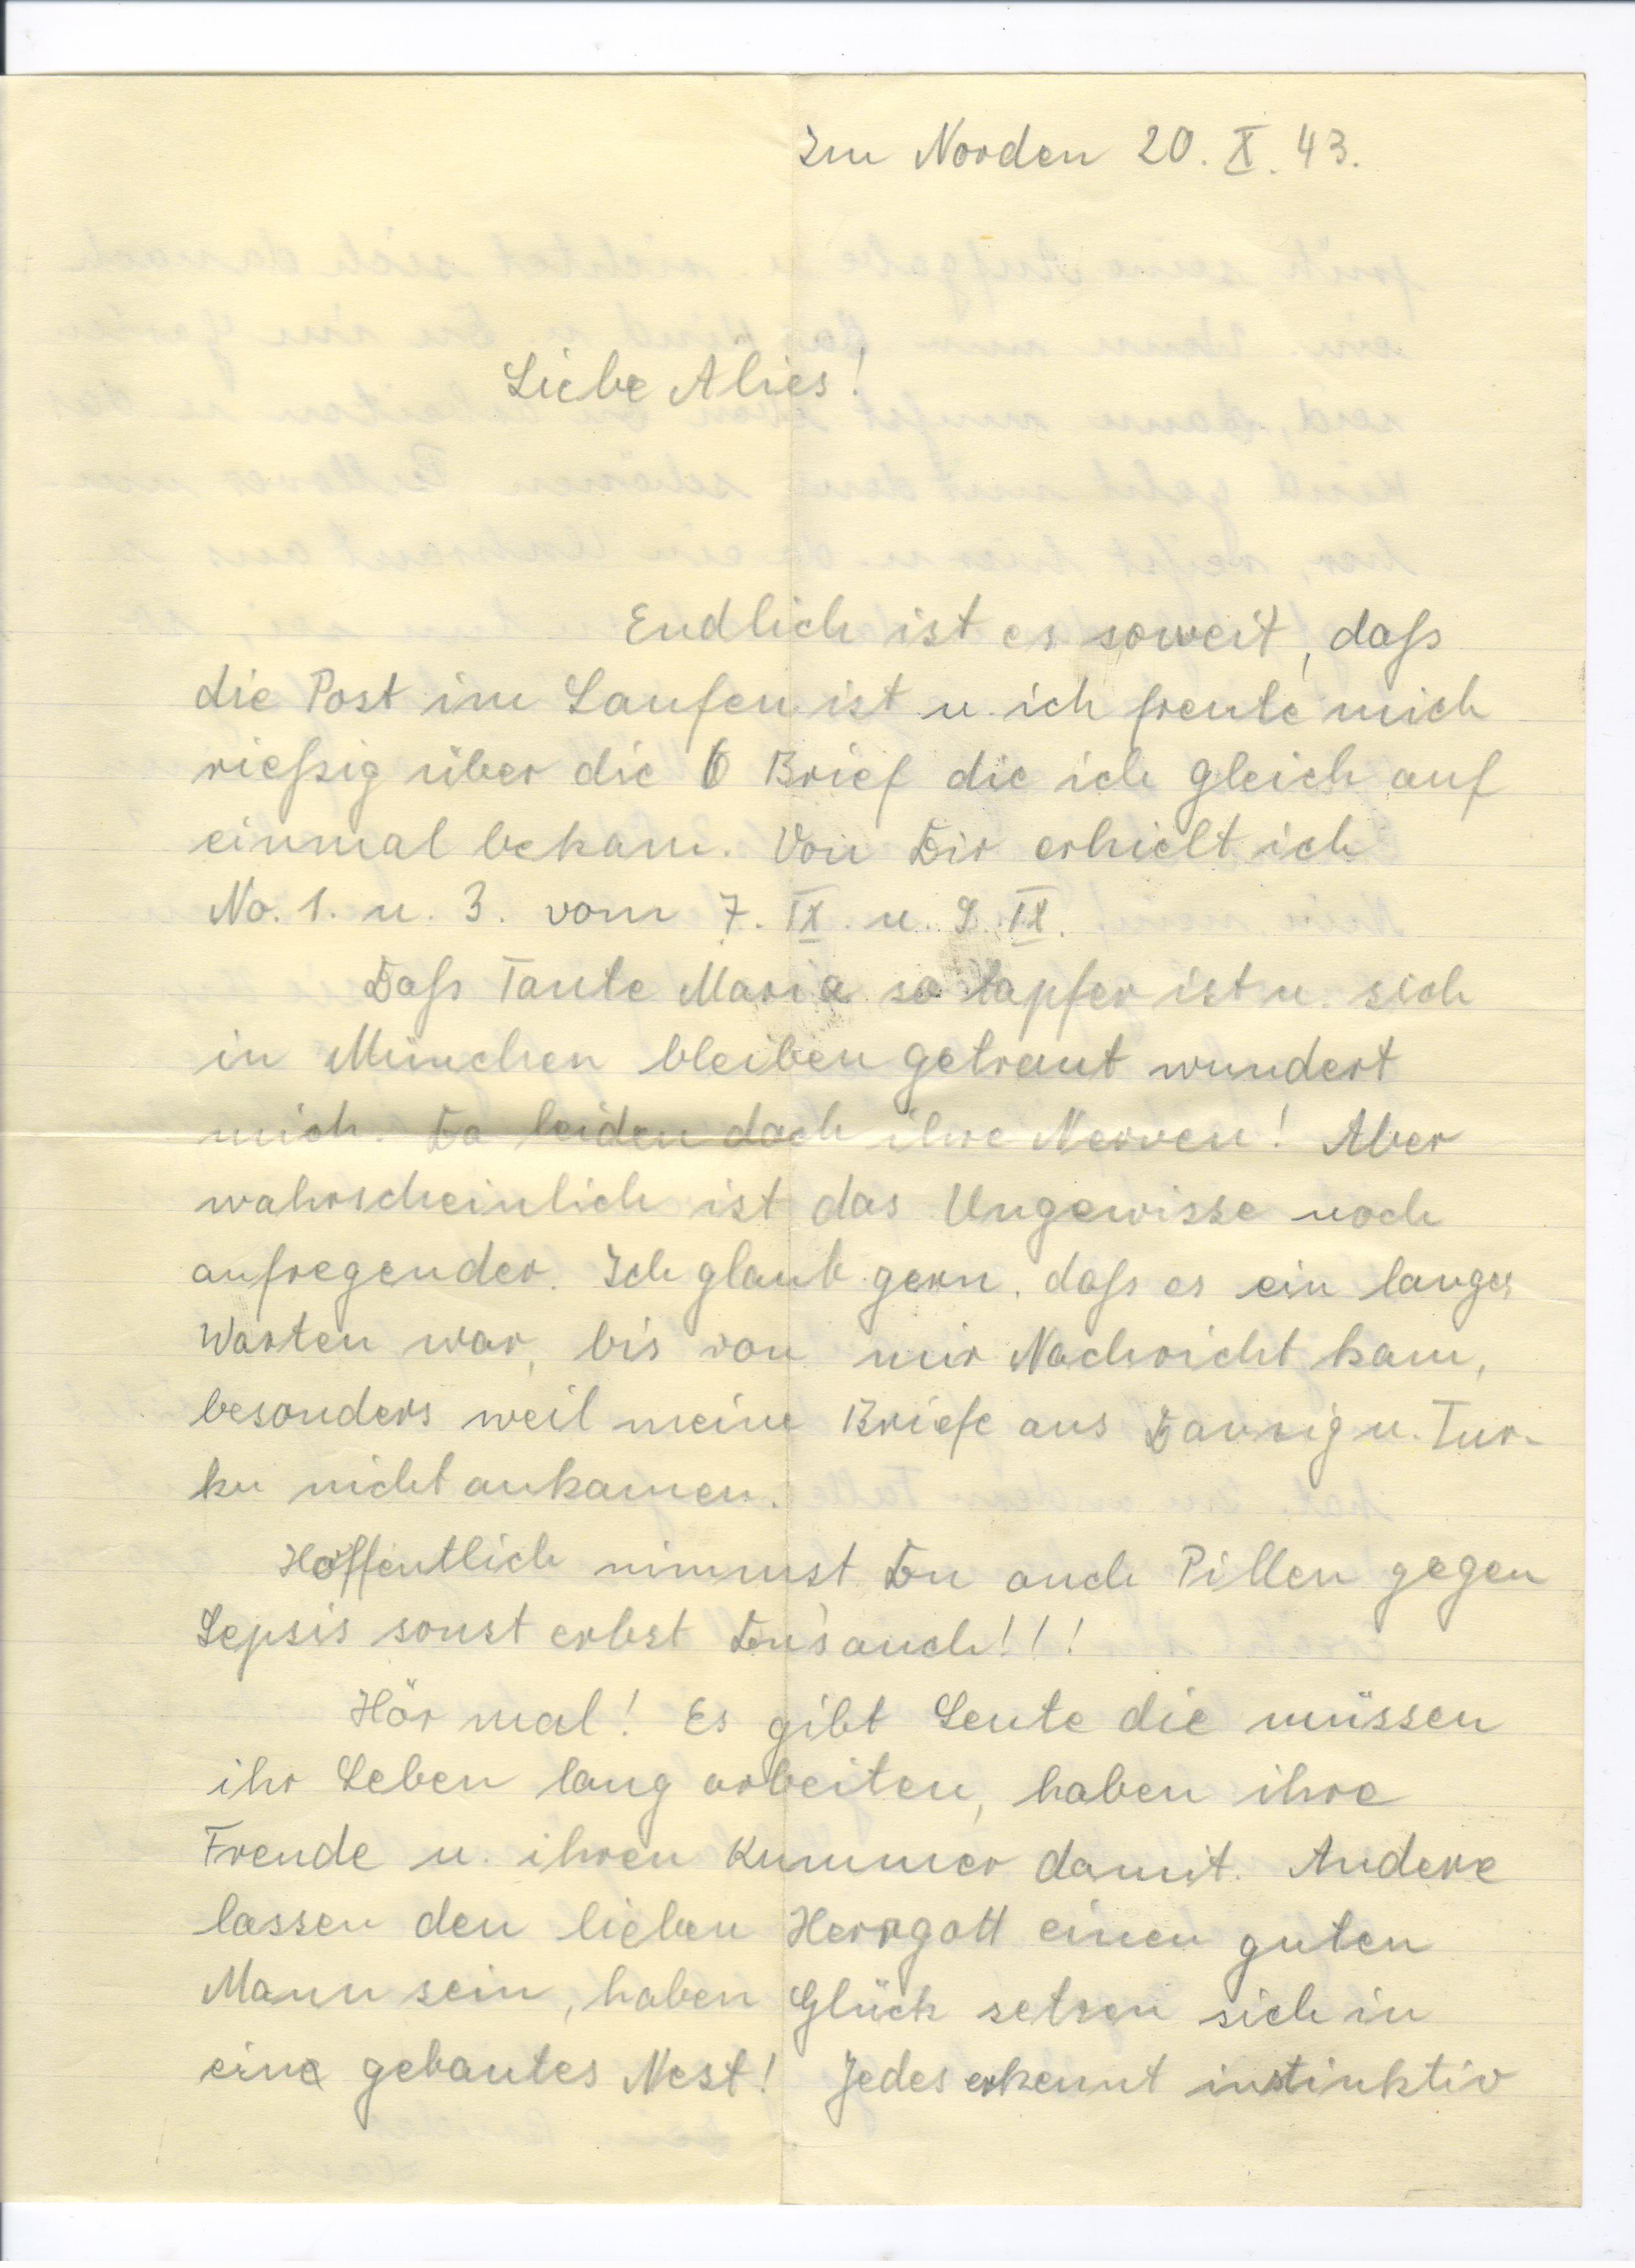 Im Norden 20. X. 43.
Liebe Alies!
Endlich ist es soweit, daß
die Post im Laufen ist u. ich freute mich
rießig über die 6 Brief die ich gleich auf
einmal bekam. Von Dir erhielt ich
No. 1. u. 3. vom 7. IX. u. 9. IX.
Daß Tante Maria so tapfer ist u. sich
in München bleiben getraut wundert
mich. Da leiden doch ihre Nerven! Aber
wahrscheinlich ist das Ungewisse noch
aufregender. Ich glaub gern, daß es ein langes
Warten war, bis von mir Nachricht kam,
besonders weil meine Briefe aus Danzig u. Tur-
ku nicht ankamen.
Hoffentlich nimmst Du auch Pillen gegen
Sepsis sonst erbst Du's auch!!!
Hör mal! Es gibt Leute die müssen
ihr Leben lang arbeiten, haben ihre
Freude u. ihren Kummer damit. Andere
lassen den lieben Herrgott einen guten
Mann sein, haben Glück setzen sich in
eine gebautes Nest! Jedes erkennt instinktiv